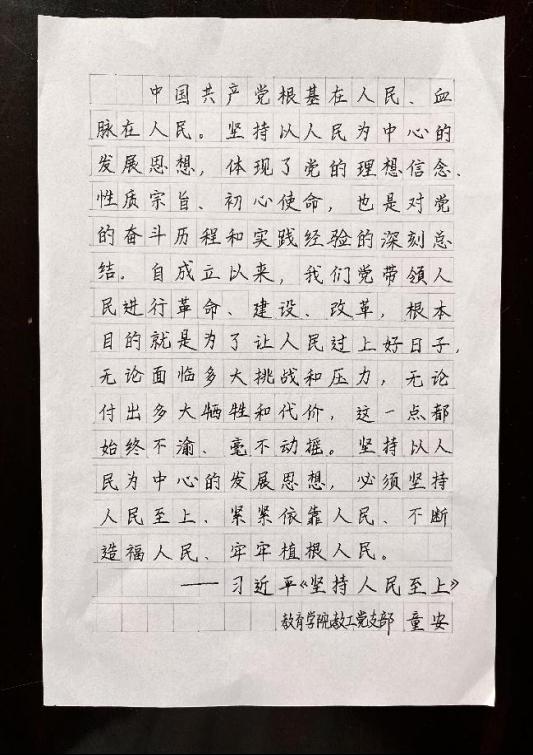 中国共产党根基在人民、血
脉在人民。坚持以人民为中心的
发展思想，体现了党的理想信念、
性质宗旨、初心使命，也是对党
的奋斗历程和实践经验的深刻总
结。自成立以来，我们党带领人
民进行革命、建设、改革，根本
目的就是为了让人民过上好日子，
无论面临多大挑战和压力，无论
付出多大牺牲和代价，这一点都
始终不渝、毫不动摇。坚持以人
民为中心的发展思想，必须坚持
人民至上、紧紧依靠人民、不断
造福人民、牢牢植根人民。
——习近平《坚持人民至上》
教育学院教工党支部 童安